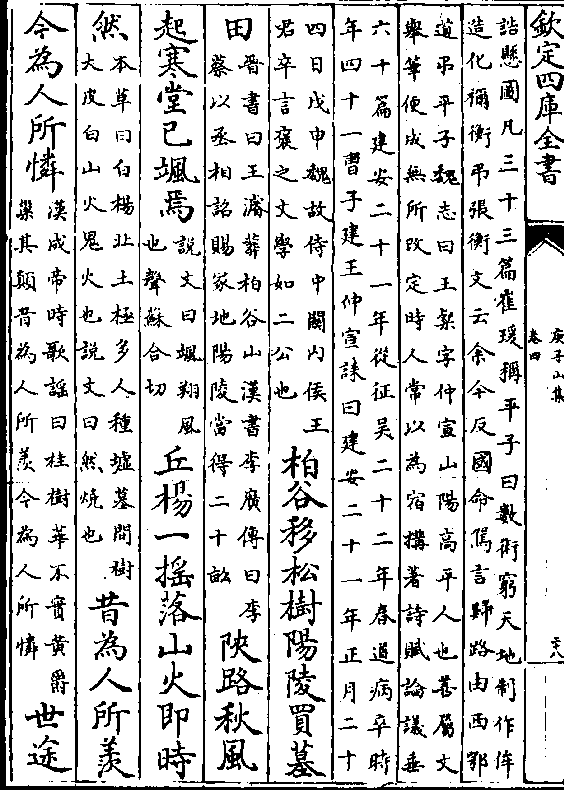 欽定四庫全書
庚子山集
卷四
誥懸圖凡三十三篇崔瑗稱平子曰數術窮天地制作侔
造化禰衡弔張衡文云余今反國命駕言歸路由西鄂
道弔平子魏志曰王粲字仲宣山陽高平人也善屬文
舉筆便成無所改定時人常以為宿構著詩賦論議垂
六十篇建安二十一年從征吳二十二年春道病卒時
年四十一曹子建王仲宣誄曰建安二十一年正月二十
四日戊申魏故侍中關内侯王
君卒言褒之文學如二公也
柏谷移松樹陽陵買墓
田
晉書曰王濬葬柏谷山漢書李廣傳曰李
蔡以丞相詔賜冢地陽陵當得二十畝
陜路秋風
起寒堂已颯焉
説文曰颯翔風
也聲蘇合切
丘楊一摇落山火即時
然
本草曰白楊北土極多人種墟墓間樹
大皮白山火鬼火也説文曰然燒也
昔為人所羡
今為人所憐
漢成帝時歌謡曰桂樹華不實黄爵
巢其顛昔為人所羡今為人所憐
世途